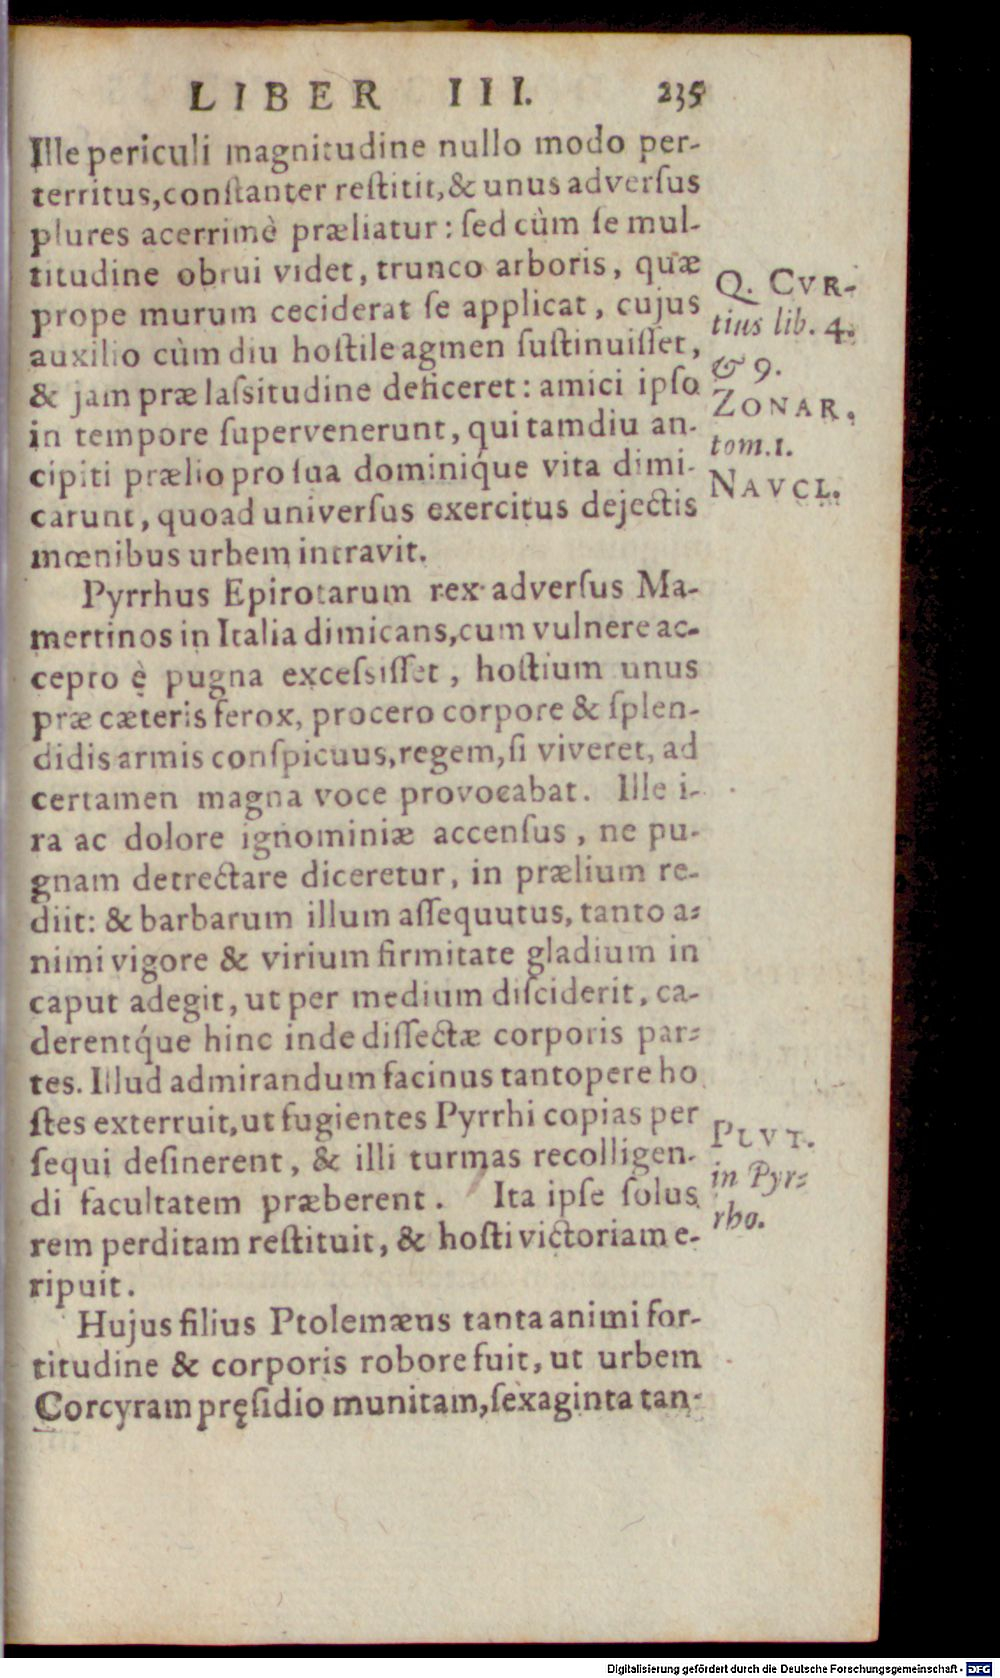 LIBER III. 235
Ille periculi magnitudine nullo modo per-
territus, constanter reſtitit, & unus adverſus
plures acerrimè præliatur: ſed cùm ſe mul-
titudine obrui videt, trunco arboris, quæ
prope murum ceciderat ſe applicat, cujus
auxilio cùm diu hoſtile agmen ſuſtinuiſſet,
& jam præ laſsitudine deficeret: amici ipſo
in tempore ſupervenerunt, qui tamdiu an-
cipiti prælio pro ſua dominiq́ue vita dimi-
carunt, quoad univerſus exercitus dejectis
mœnibus urbem intravit.
Q. CVR-
tius lib. 4.
& 9.
ZONAR.
tom.1.
NAVCL.
Pyrrhus Epirotarum rex adverſus Ma-
mertinos in Italia dimicans, cum vulnere ac-
cepto è pugna exceſsiſſet, hoſtium unus
præ cæteris ferox, procero corpore & ſplen-
didis armis conſpicuus, regem, ſi viveret, ad
certamen magna voce provocabat. Ille i-
ra ac dolore ignominiæ accenſus, ne pu-
gnam detrectare diceretur, in prælium re-
diit: & barbarum illum aſſequutus, tanto a-
nimi vigore & virium firmitate gladium in
caput adegit, ut per medium diſciderit, ca-
derentq́ue hinc inde diſſectæ corporis par-
tes. Illud admirandum facinus tantopere ho
ſtes exterruit, ut fugientes Pyrrhi copias per
ſequi deſinerent, & illi turmas recolligen-
di facultatem præberent. Ita ipſe ſolus
rem perditam reſtituit, & hoſti victoriam e-
ripuit.
PLVT.
in Pyr-
rho.
Hujus filius Ptolemæus tanta animi for-
titudine & corporis robore fuit, ut urbem
Corcyram pręſidio munitam, ſexaginta tan-
Digitalisierung gefördert durch die Deutsche Forschungsgemeinschaft - DFG